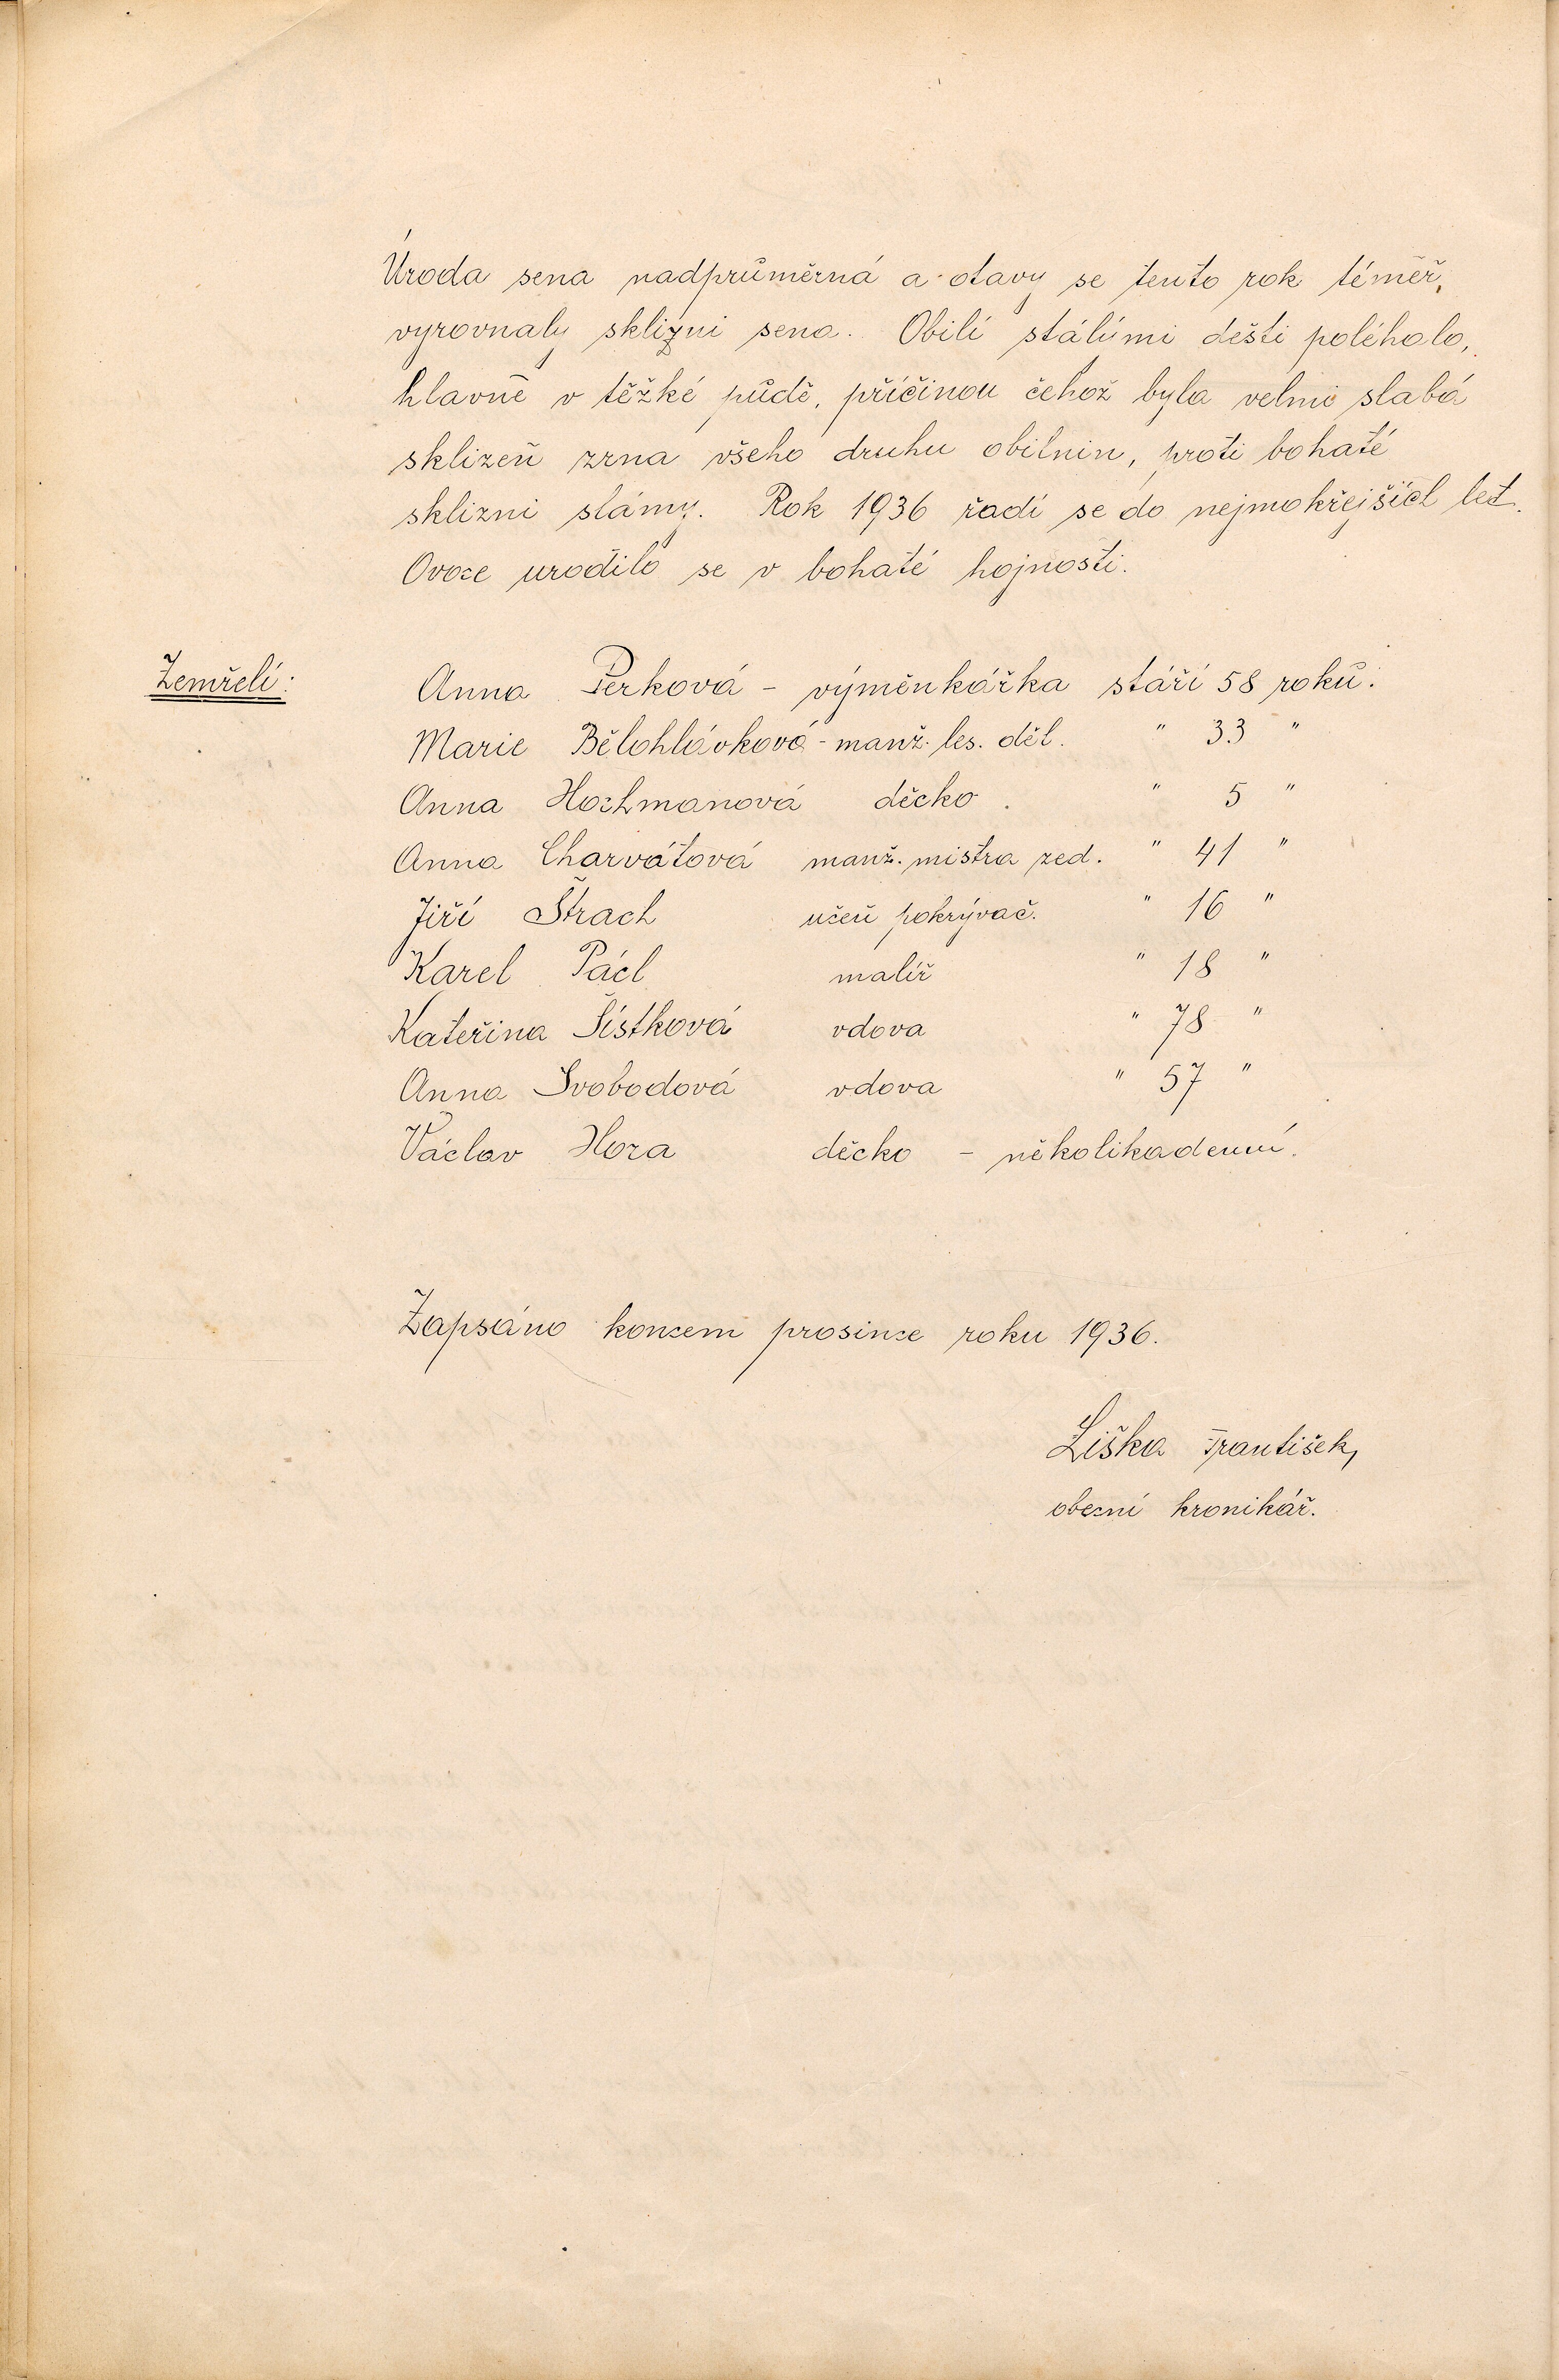 Úroda sena nadprůměrná a otavy se tento rok téměř,
vyrovnaly sklizni sena. Obilí stálými dešti poléhalo,
hlavně v těžké půdě, příčinou čehož byla velmi slabá
sklizeň zrna všeho druhu obilnin, proti bohaté
sklizni slámy. Rok 1936 řadí se do nejmokřejších let.
Ovoce urodilo se v bohaté hojnosti.
Zemřelí: Anna Perková - výměnkářka stáří 58 roků.
Marie Bělohlávková - manž. les. děl. " 33 "
Anna Hochmanová děcko. " 5 "
Anna Charvátová manž. mistra zed. " 41 "
Jiří Štrach učeň pokrývač. " 16 "
Karel Pácl malíř " 18 "
Kateřina Šístková vdova " 78 "
Anna Svobodová vdova " 57 "
Václav Hora děcko - několikadenní.
Zapsáno koncem prosince roku 1936.
Liška František,
obecní kronikář.